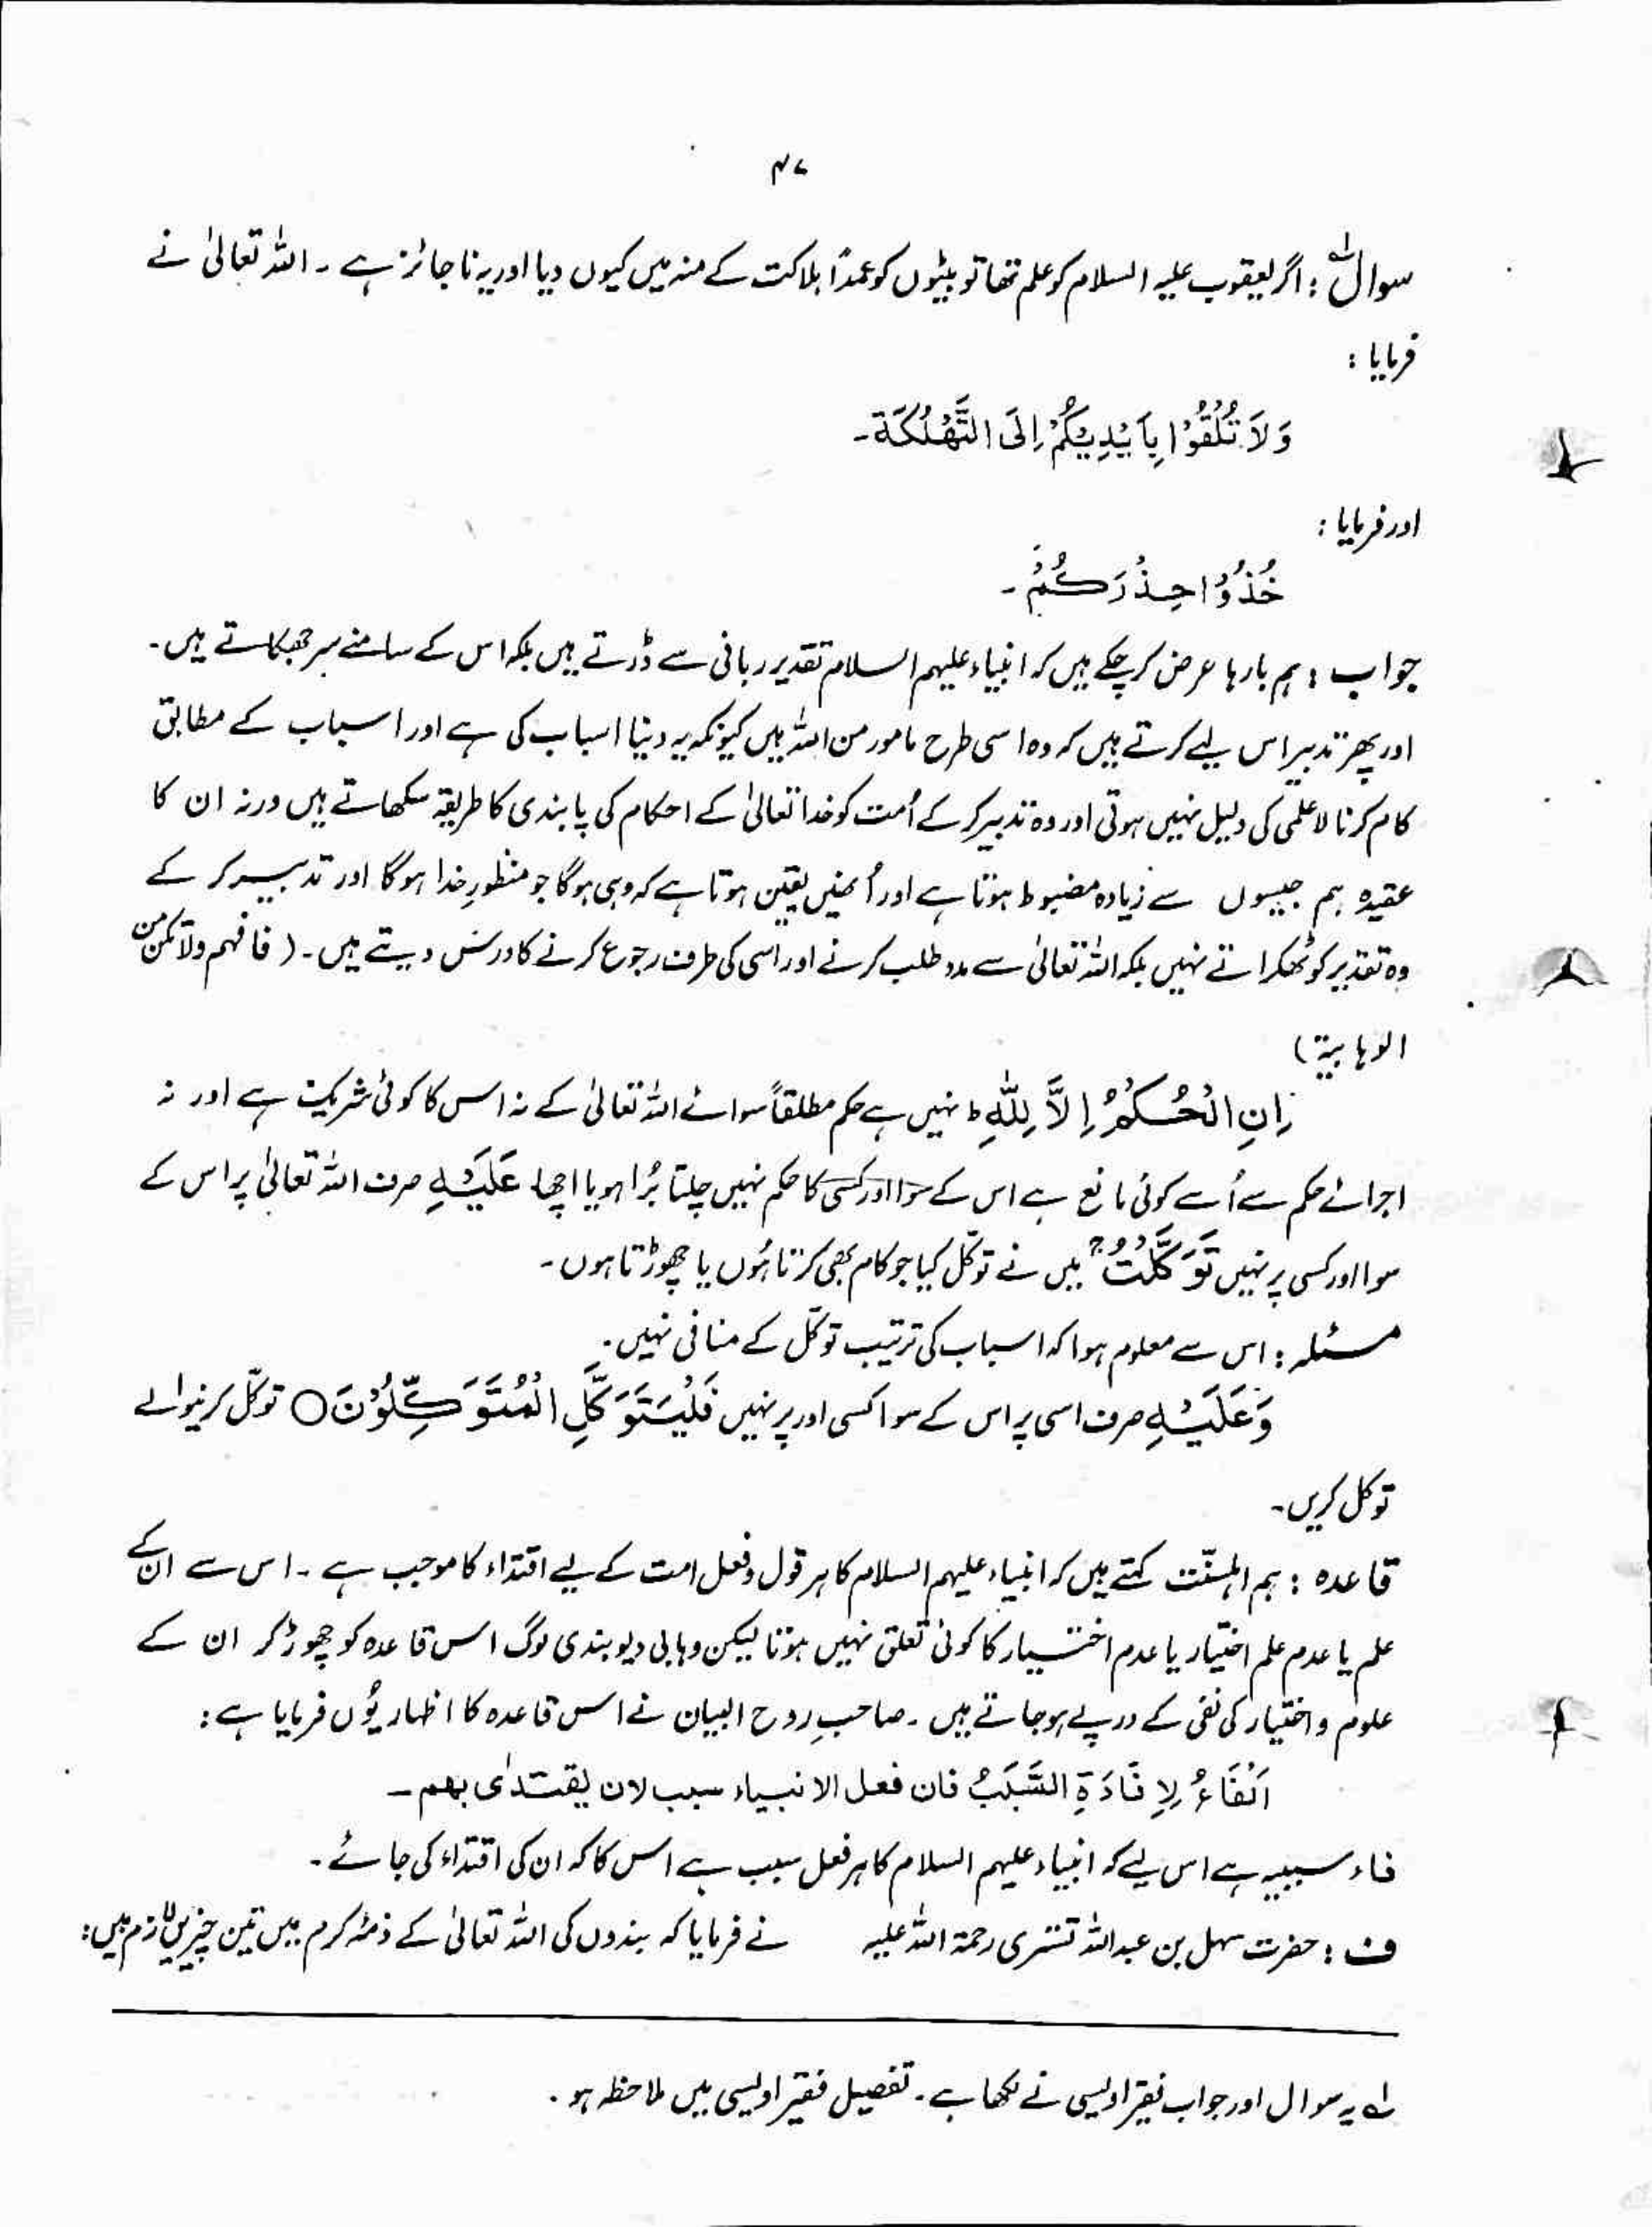 ۴۷
سوال؎۱ : اگر یعقوب علیہ السلام کو علم تھا تو بیٹوں کو عمداً ہلاکت کے منہ میں کیوں دیا اور یہ ناجائز ہے ۔ اللہ تعالیٰ نے
فرمایا :
وَلَا تُلْقُوْا بِاَیْدِیْکُمْ اِلَی التَّھْلُکَۃ۔
اور فرمایا :
خُذُوْا حِذْرَکُمْ ۔
جواب : ہم بارہا عرض کر چکے ہیں کہ انبیاء علیہم السلام تقدیر ربانی سے ڈرتے ہیں بلکہ اس کے سامنے سر جھکاتے ہیں۔
اور پھر تدبیر اس لیے کرتے ہیں کہ وہ اسی طرح مامور من اللہ ہیں کیونکہ یہ دنیا اسباب کی ہے اور اسباب کے مطابق
کام کرنا لاعلمی کی دلیل نہیں ہوتی اور وہ تدبیر کر کے اُمت کو خدا تعالیٰ کے احکام کی پابندی کا طریقہ سکھاتے ہیں ورنہ ان کا
عقیدہ ہم جیسوں سے زیادہ مضبوط ہوتا ہے اور اُنھیں یقین ہوتا ہے کہ وہی ہوگا جو منظورِ خدا ہوگا اور تدبیر کر کے
وہ تقدیر کو ٹھکراتے نہیں بلکہ اللہ تعالیٰ سے مدد طلب کرنے اور اسی کی طرف رجوع کرنے کا درس دیتے ہیں ۔ ( فافہم ولا تکن من
الوہابیۃ )
اِنِ الْحُکْمُ اِلَّا لِلّٰہِ ط نہیں ہے حکم مطلقاً سوائے اللہ تعالیٰ کے نہ اس کا کوئی شریک ہے اور نہ
اجرائے حکم سے اُسے کوئی مانع ہے اس کے سوا اور کسی کا حکم نہیں چلتا بُرا ہو یا اچھا۔ عَلَیْہِ صرف اللہ تعالیٰ پر اس کے
سوا اور کسی پر نہیں تَوَکَّلْتُ ج میں نے توکّل کیا جو کام بھی کرتا ہُوں یا چھوڑتا ہوں ۔
مسئلہ : اس سے معلوم ہوا کہ اسباب کی ترتیب توکّل کے منافی نہیں ۔
وَعَلَیْہِ صرف اسی پر اس کے سوا کسی اور پر نہیں فَلْیَتَوَکَّلِ الْمُتَوَکِّلُوْنَ ○ توکّل کرنیوالے
توکل کریں ۔
قاعدہ : ہم اہلسنّت کہتے ہیں کہ انبیاء علیہم السلام کا ہر قول و فعل امت کے لیے اقتداء کا موجب ہے ۔ اس سے ان کے
علم یا عدم علم اختیار یا عدم اختیار کا کوئی تعلق نہیں ہوتا لیکن وہابی دیوبندی لوگ اس قاعدہ کو چھوڑ کر ان کے
علوم و اختیار کی نفی کے درپے ہوجاتے ہیں ۔ صاحبِ روح البیان نے اس قاعدہ کا اظہار یُوں فرمایا ہے :
اَلْفَاءُ لِاِفَادَۃِ السَّبَبُ فان فعل الانبیاء سبب لان یقتدٰی بھم ۔
فاء سببیہ ہے اس لیے کہ انبیاء علیہم السلام کا ہر فعل سبب ہے اس کا کہ ان کی اقتداء کی جائے ۔
ف : حضرت سہل بن عبداللہ تستری رحمۃ اللہ علیہ نے فرمایا کہ بندوں کی اللہ تعالیٰ کے ذمۂ کرم میں تین چیزیں لازم ہیں :
؎۱ یہ سوال اور جواب فقیر اویسی نے لکھا ہے ۔ تفصیل فقیر اویسی میں ملاحظہ ہو ۔